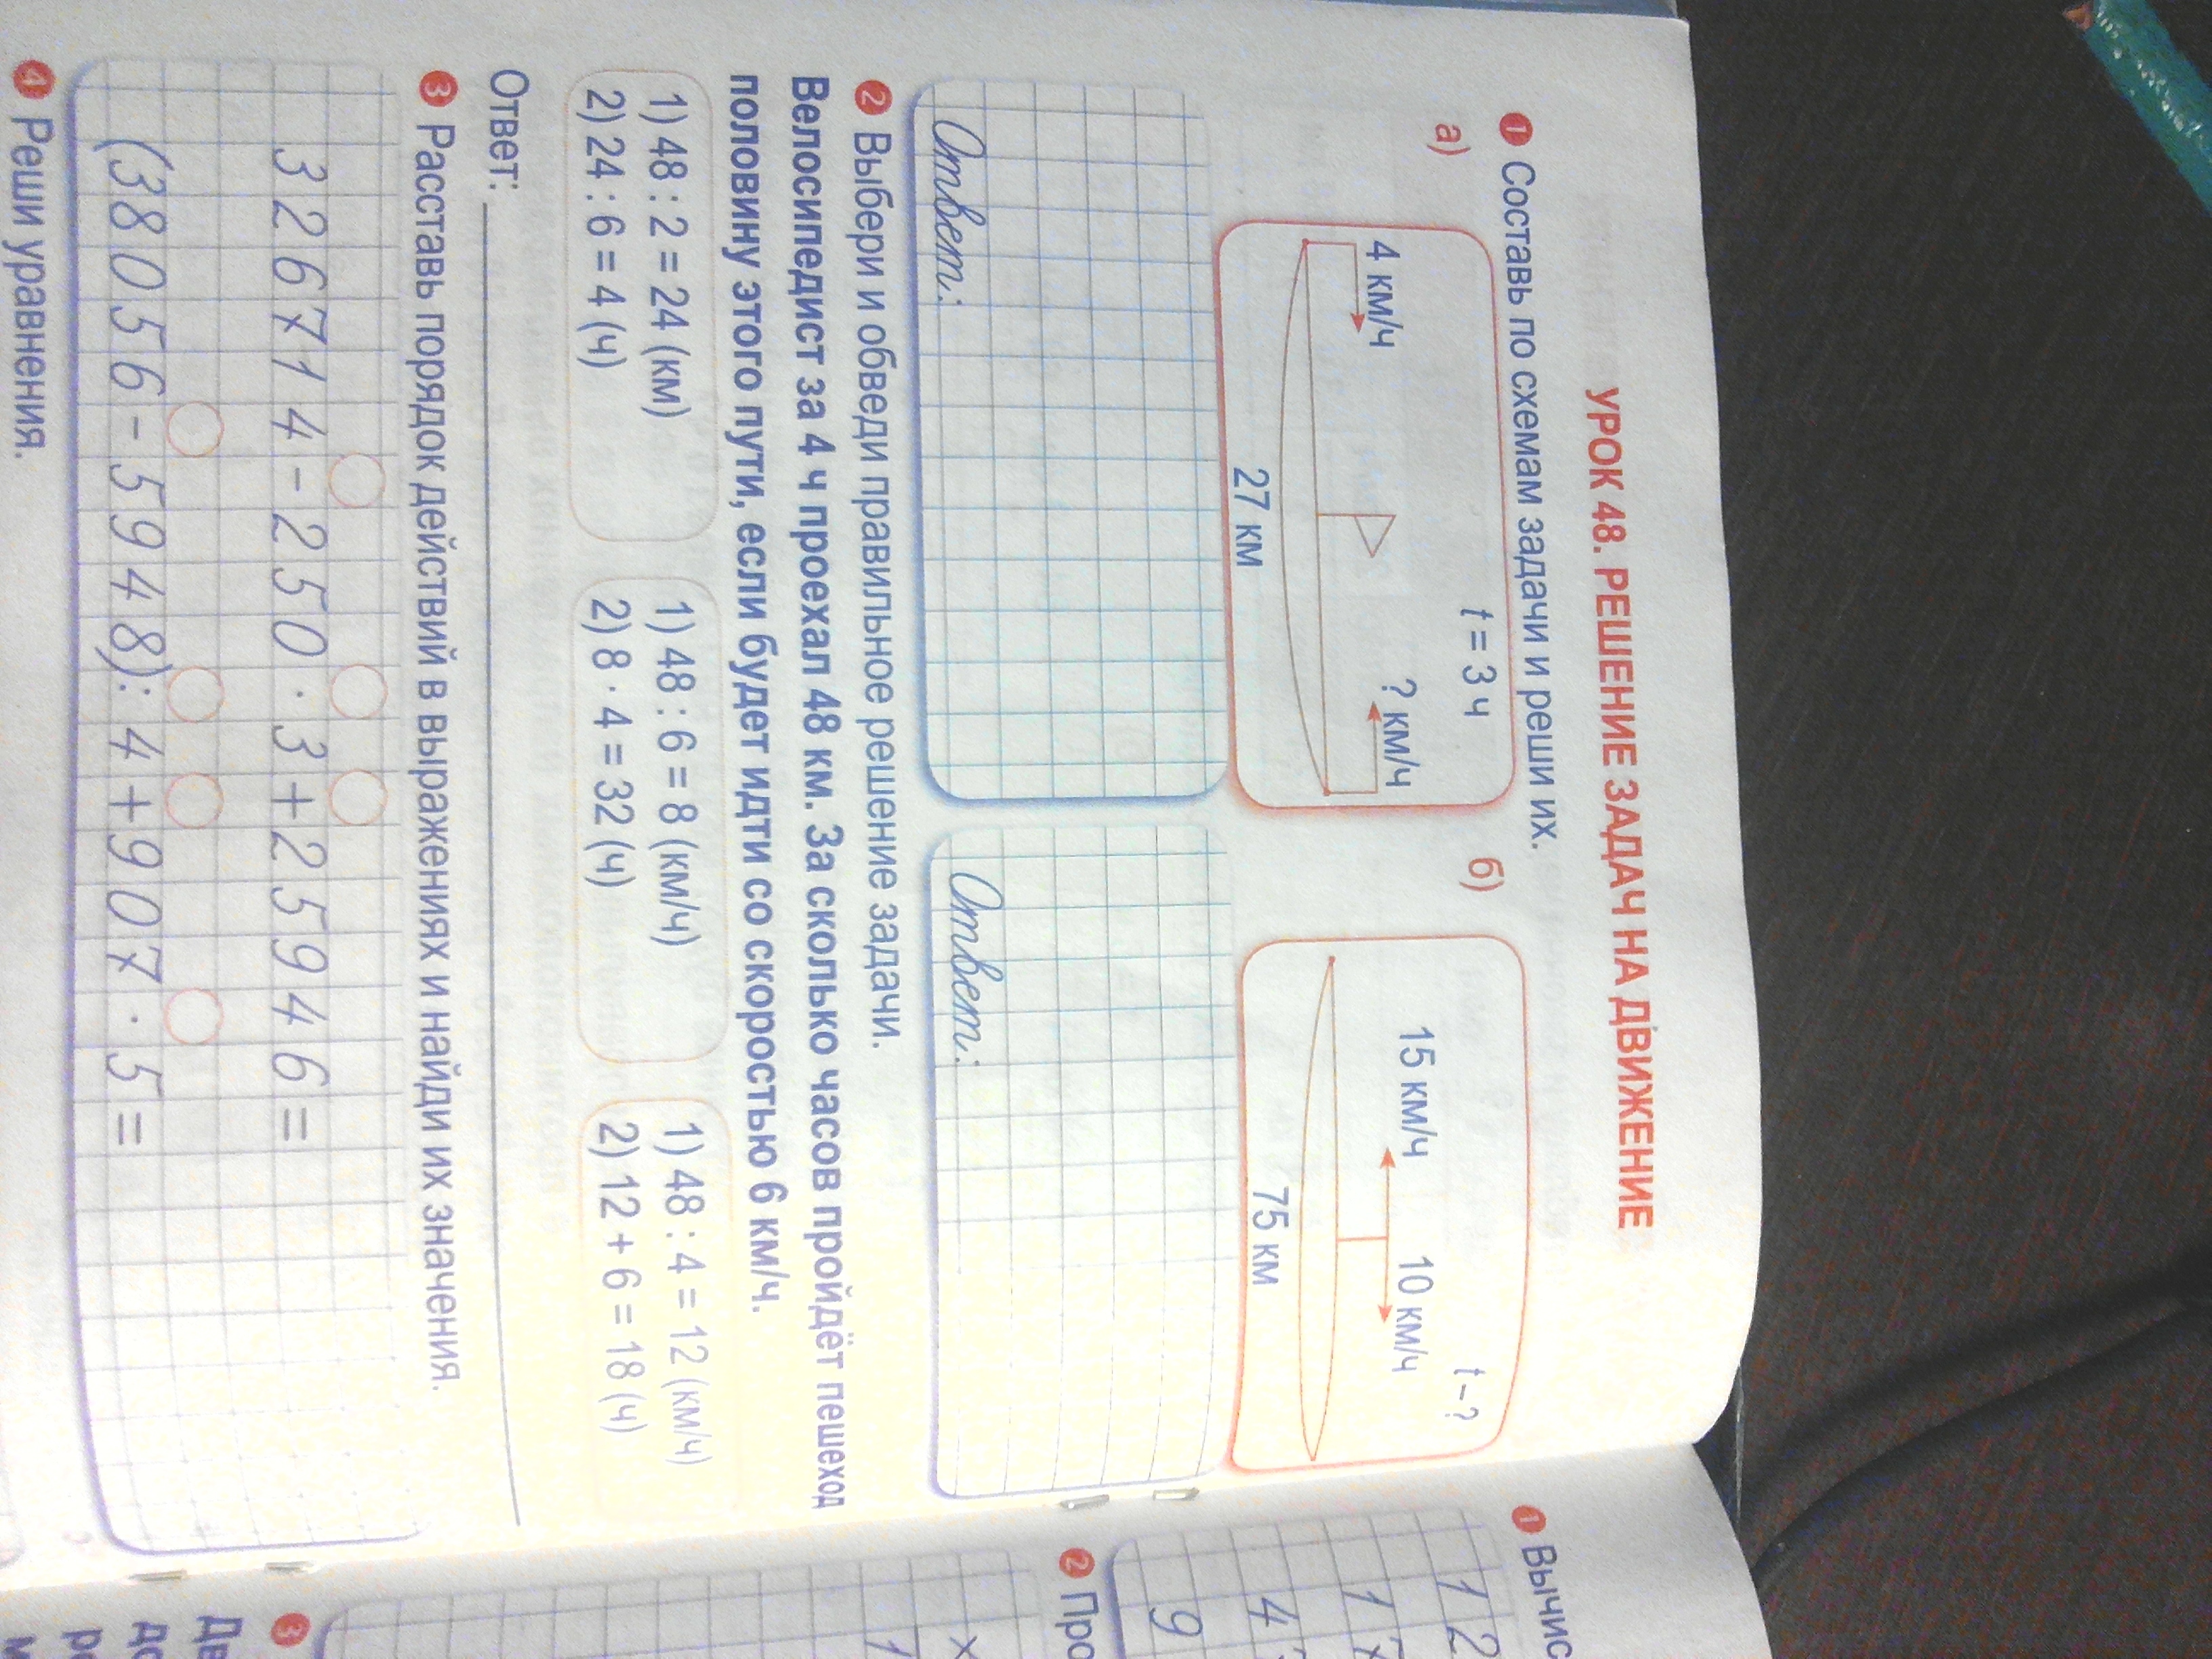 УРОК 48. РЕШЕНИЕ ЗАДАЧ НА ДВИЖЕНИЕ
1 Составь по схемам задачи и реши их.
а)
t = 3 ч
4 км/ч
? км/ч
27 км
б)
t – ?
15 км/ч
10 км/ч
75 км
Ответ:
Ответ:
2 Выбери и обведи правильное решение задачи.
Велосипедист за 4 ч проехал 48 км. За сколько часов пройдёт пешеход
половину этого пути, если будет идти со скоростью 6 км/ч.
1) 48 : 2 = 24 (км)
2) 24 : 6 = 4 (ч)
1) 48 : 6 = 8 (км/ч)
2) 8 · 4 = 32 (ч)
1) 48 : 4 = 12 (км/ч)
2) 12 + 6 = 18 (ч)
Ответ:
3 Расставь порядок действий в выражениях и найди их значения.
326714 – 250 · 3 + 25946 =
(38056 – 5948) : 4 + 907 · 5 =
4 Реши уравнения.
1 Вычис
12
17
4
9
2 Про
×
1
3
Дв
до
ро
м